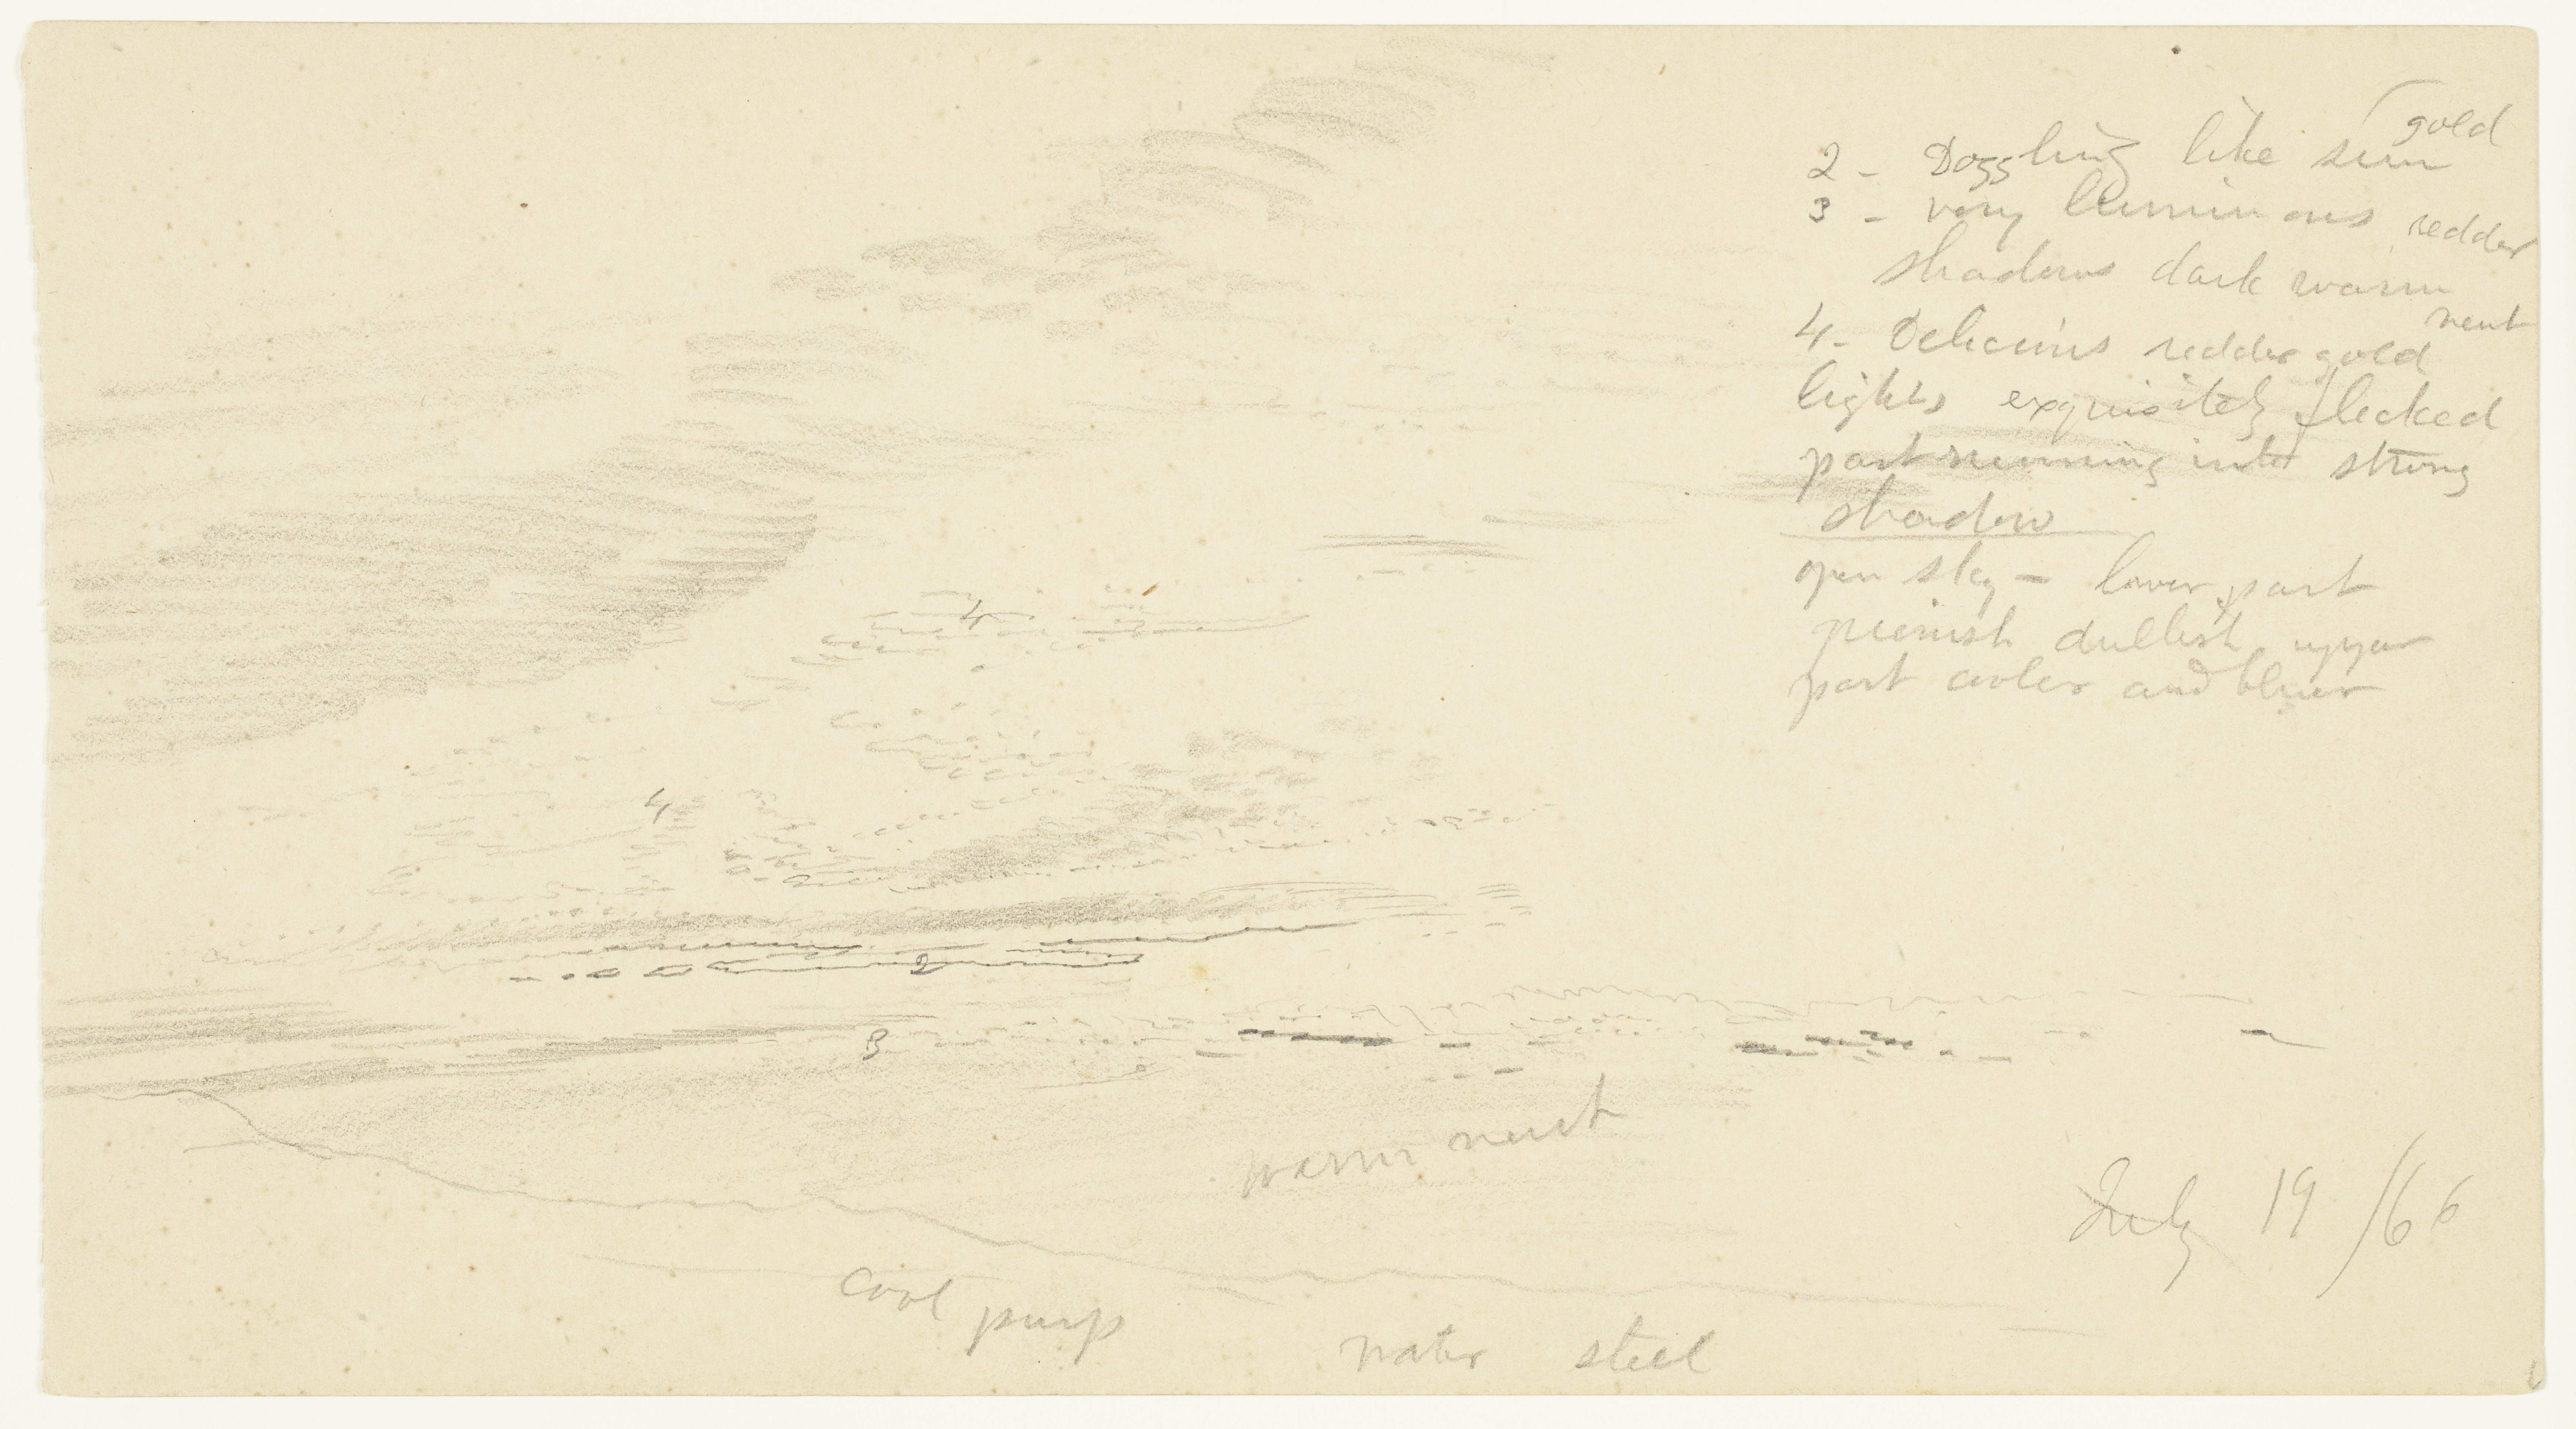 gold
2 - Dozzling like sun
3 - very luminous redder
shadows dark warm
neut
4 - Delicious redder gold
lights exquisitely flecked
part running into strong
shadow
open sky - lower part
greenish dullish upper
part cooler and bluer
4
4
2
3
warm neut
July 19 /66
cool purp
water steel